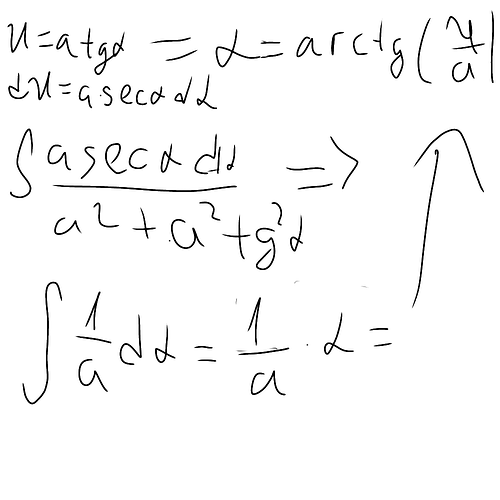 u = a tg α = α = arctg(u/a)
du = a·secα dα
∫ a secα dα / a² + a² tg² α ⇒
∫ 1/a dα = 1/a · α =